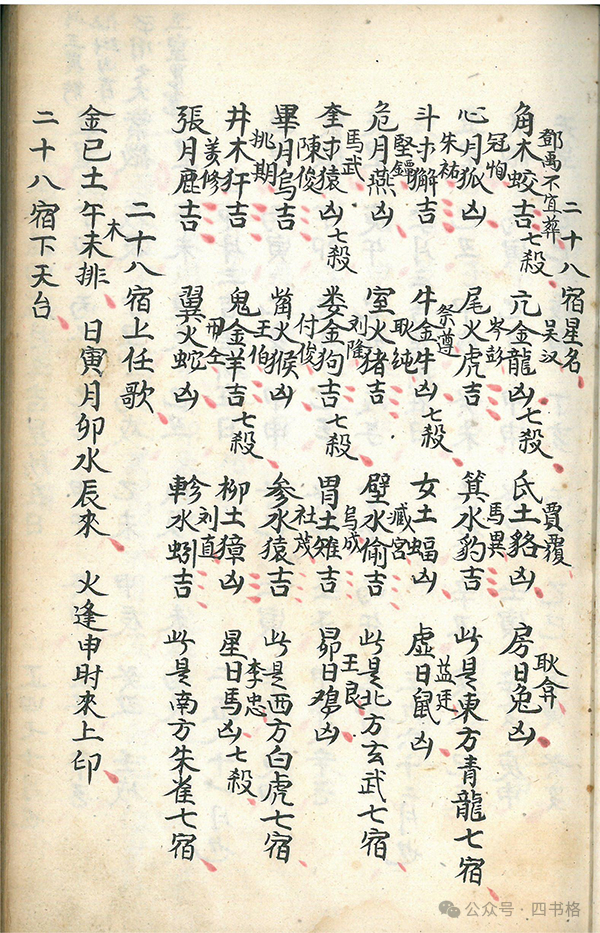 二十八宿星名
鄧禹不宜葬 吴汉 賈覆 耿弇
角木蛟吉七殺 亢金龍凶七殺 氐土貉凶 房日兔凶
冠恂 岑彭 馬異
心月狐凶 尾火虎吉 箕水豹吉 此是東方青龍七宿
朱祐 祭遵 益廷
斗才獬吉 牛金牛凶七殺 女土蝠凶 虛日鼠凶
堅鐔 耿纯 臧宮
危月燕凶 室火猪吉 壁水偷吉 此是北方玄武七宿
馬武 刘隆 烏成 王良
奎才猿凶七殺 娄金狗吉七殺 胃土雉吉 昴日鸡凶
陳俊 付俊 社茂
畢月乌吉 觜火猴凶 参水猿吉 此是西方白虎七宿
姚期 王伯 李忠
井木犴吉 鬼金羊吉七殺 柳土獐凶 星日馬凶七殺
姜修 刘直
張月鹿吉 翼火蛇凶 軫水蚓吉 此是南方朱雀七宿
二十八宿上任歌
金巳土午木未排 日寅月卯水辰來 火逢申时來上印
二十八宿下天台
公众号·四书格